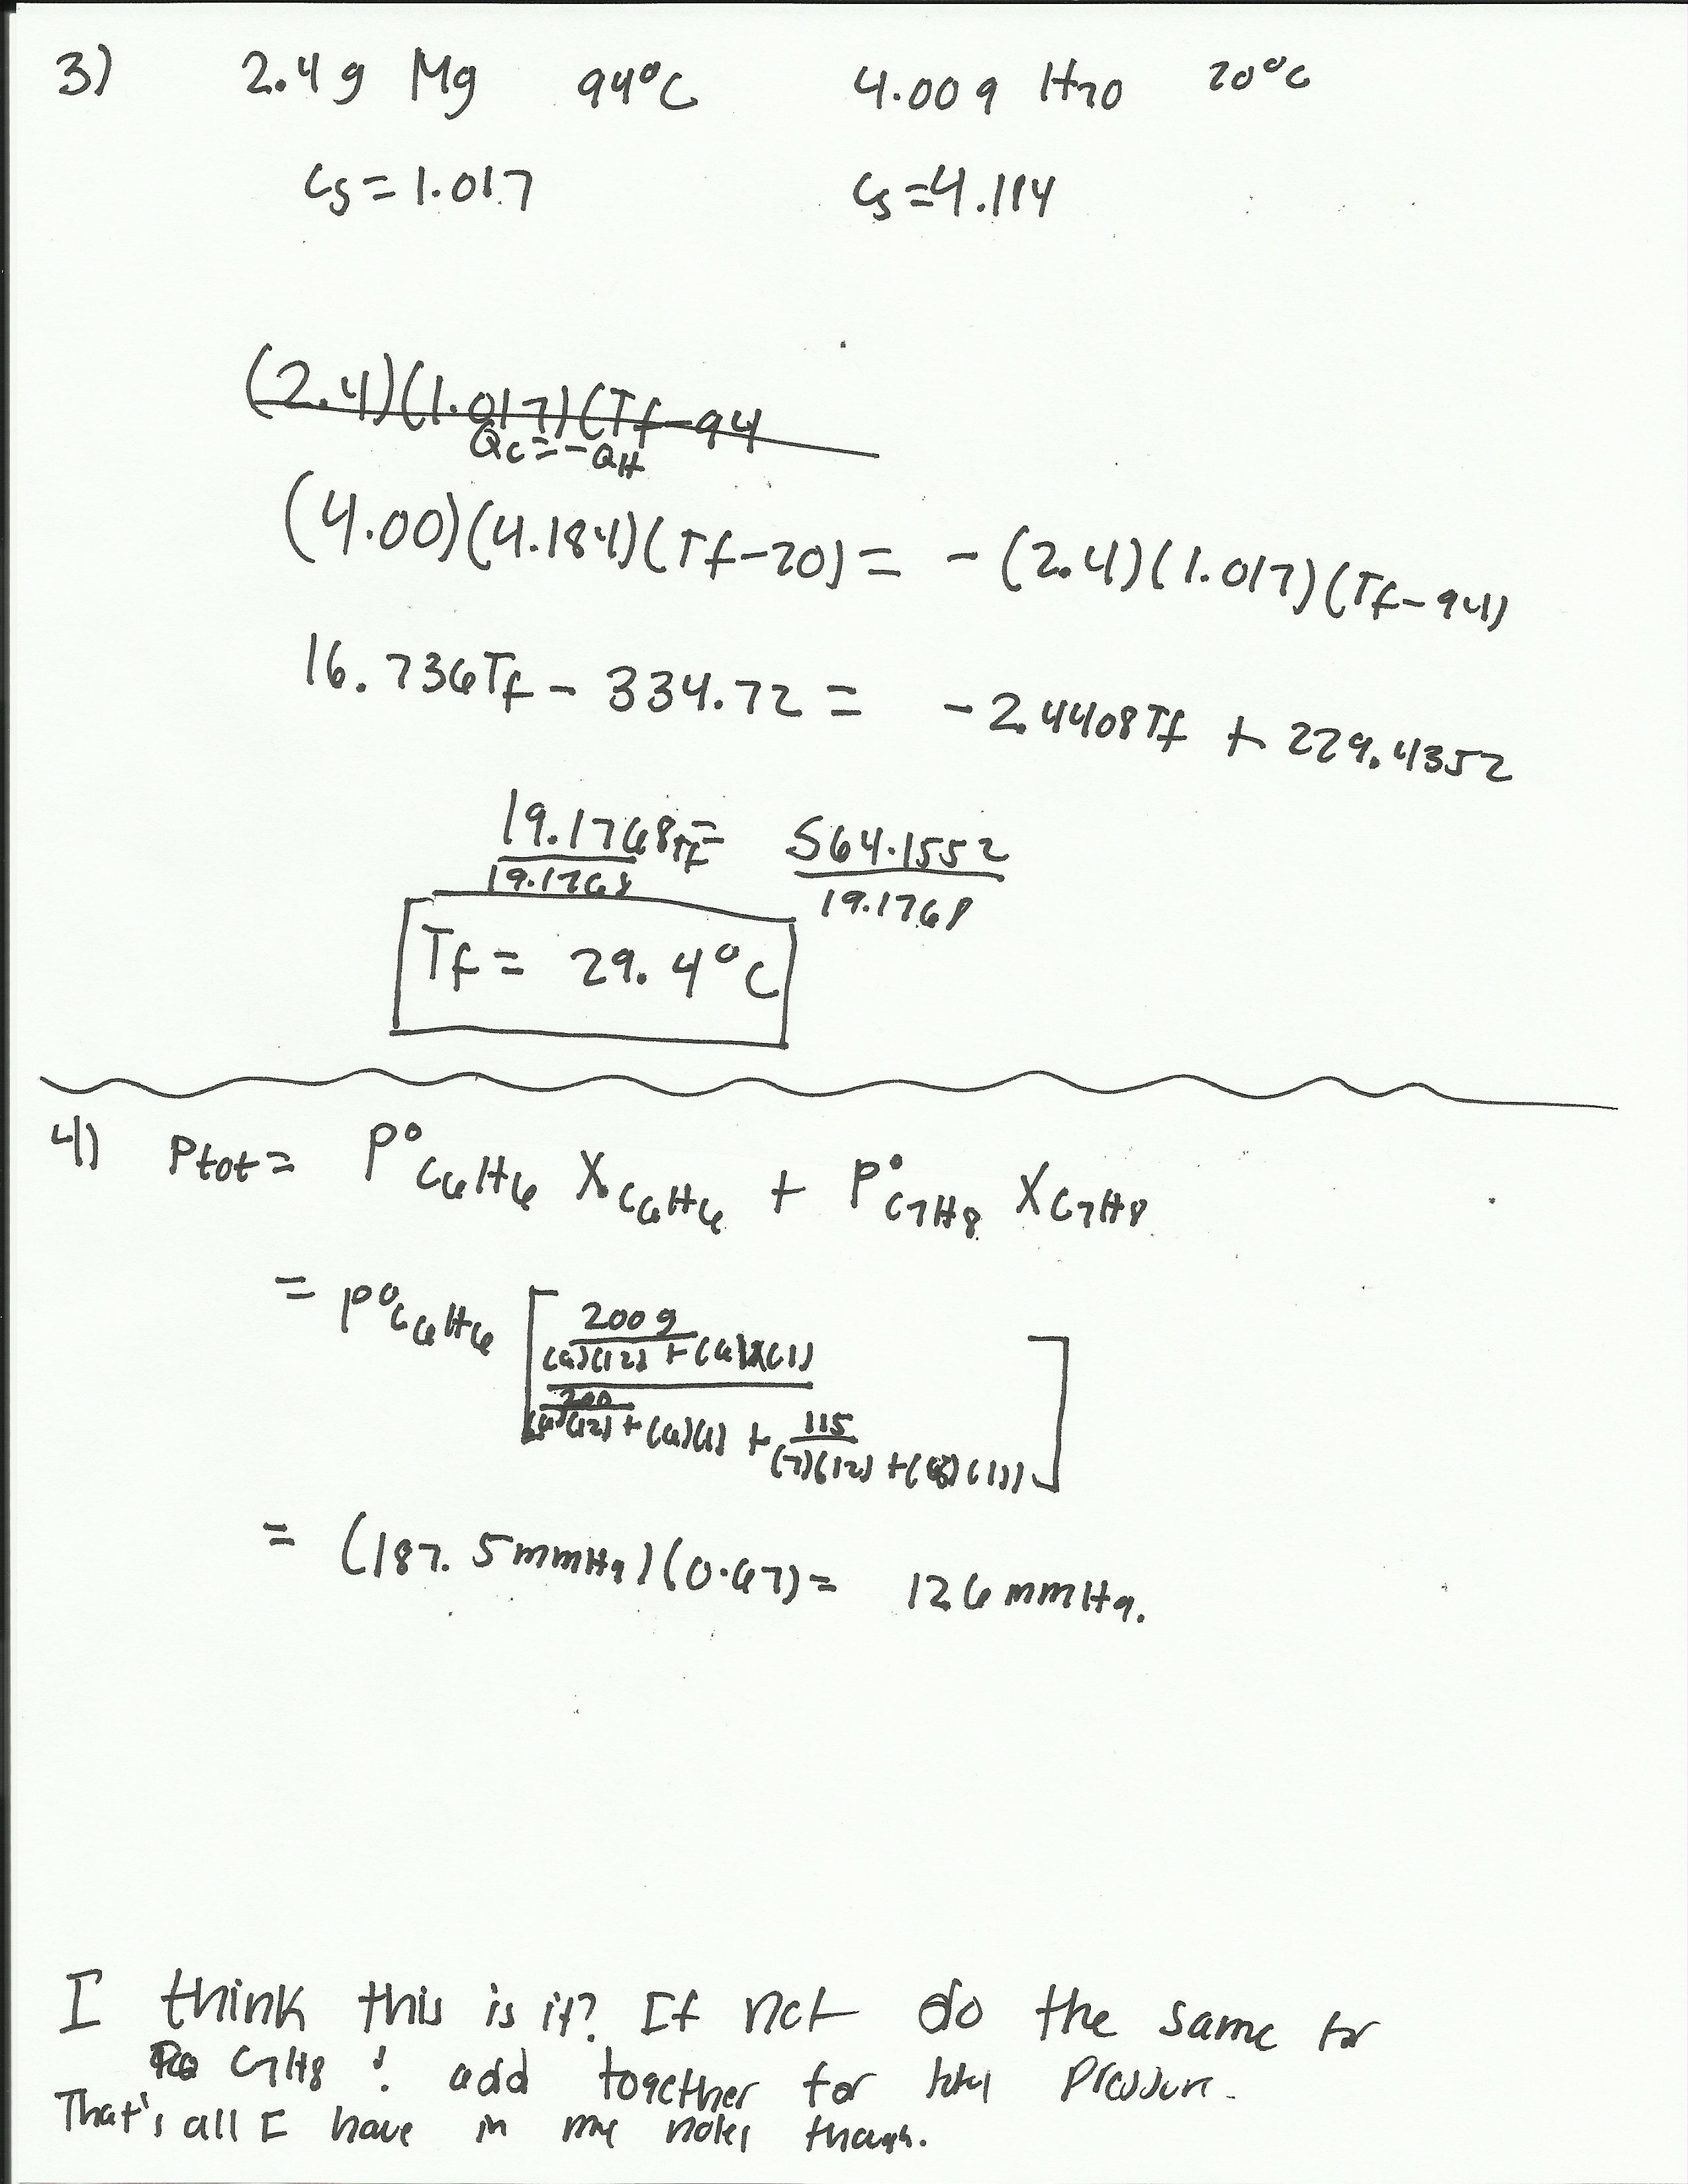 3) 2.4g Mg 94°C 4.00g H2O 20°C
Cs=1.017 Cs=4.184
(2.4)(1.017)(Tf-94
Qc=-QH
(4.00)(4.184)(Tf-20)= -(2.4)(1.017)(Tf-94)
16.736Tf - 334.72 = -2.4408Tf + 229.4352
19.1768Tf = 564.1552
19.1768 19.1768
Tf = 29.4°C
4) Ptot = P°C6H6 XC6H6 + P°C7H8 XC7H8
= P°C6H6 [ 200g
(6)(12) + (6)(1)
200
(6)(12) + (6)(1) + 115
(7)(12) + (8)(1) ]
= (187.5mmHg)(0.67) = 126mmHg.
I think this is it? If not do the same for
C7H8 & add together for total pressure.
That's all I have in my notes though.